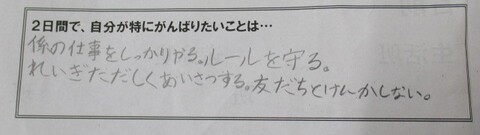 2日間で、自分が特にがんばりたいことは…
係の仕事をしっかりやる。ルールを守る。
れいぎただしくあいさつする。友だちとけんかしない。